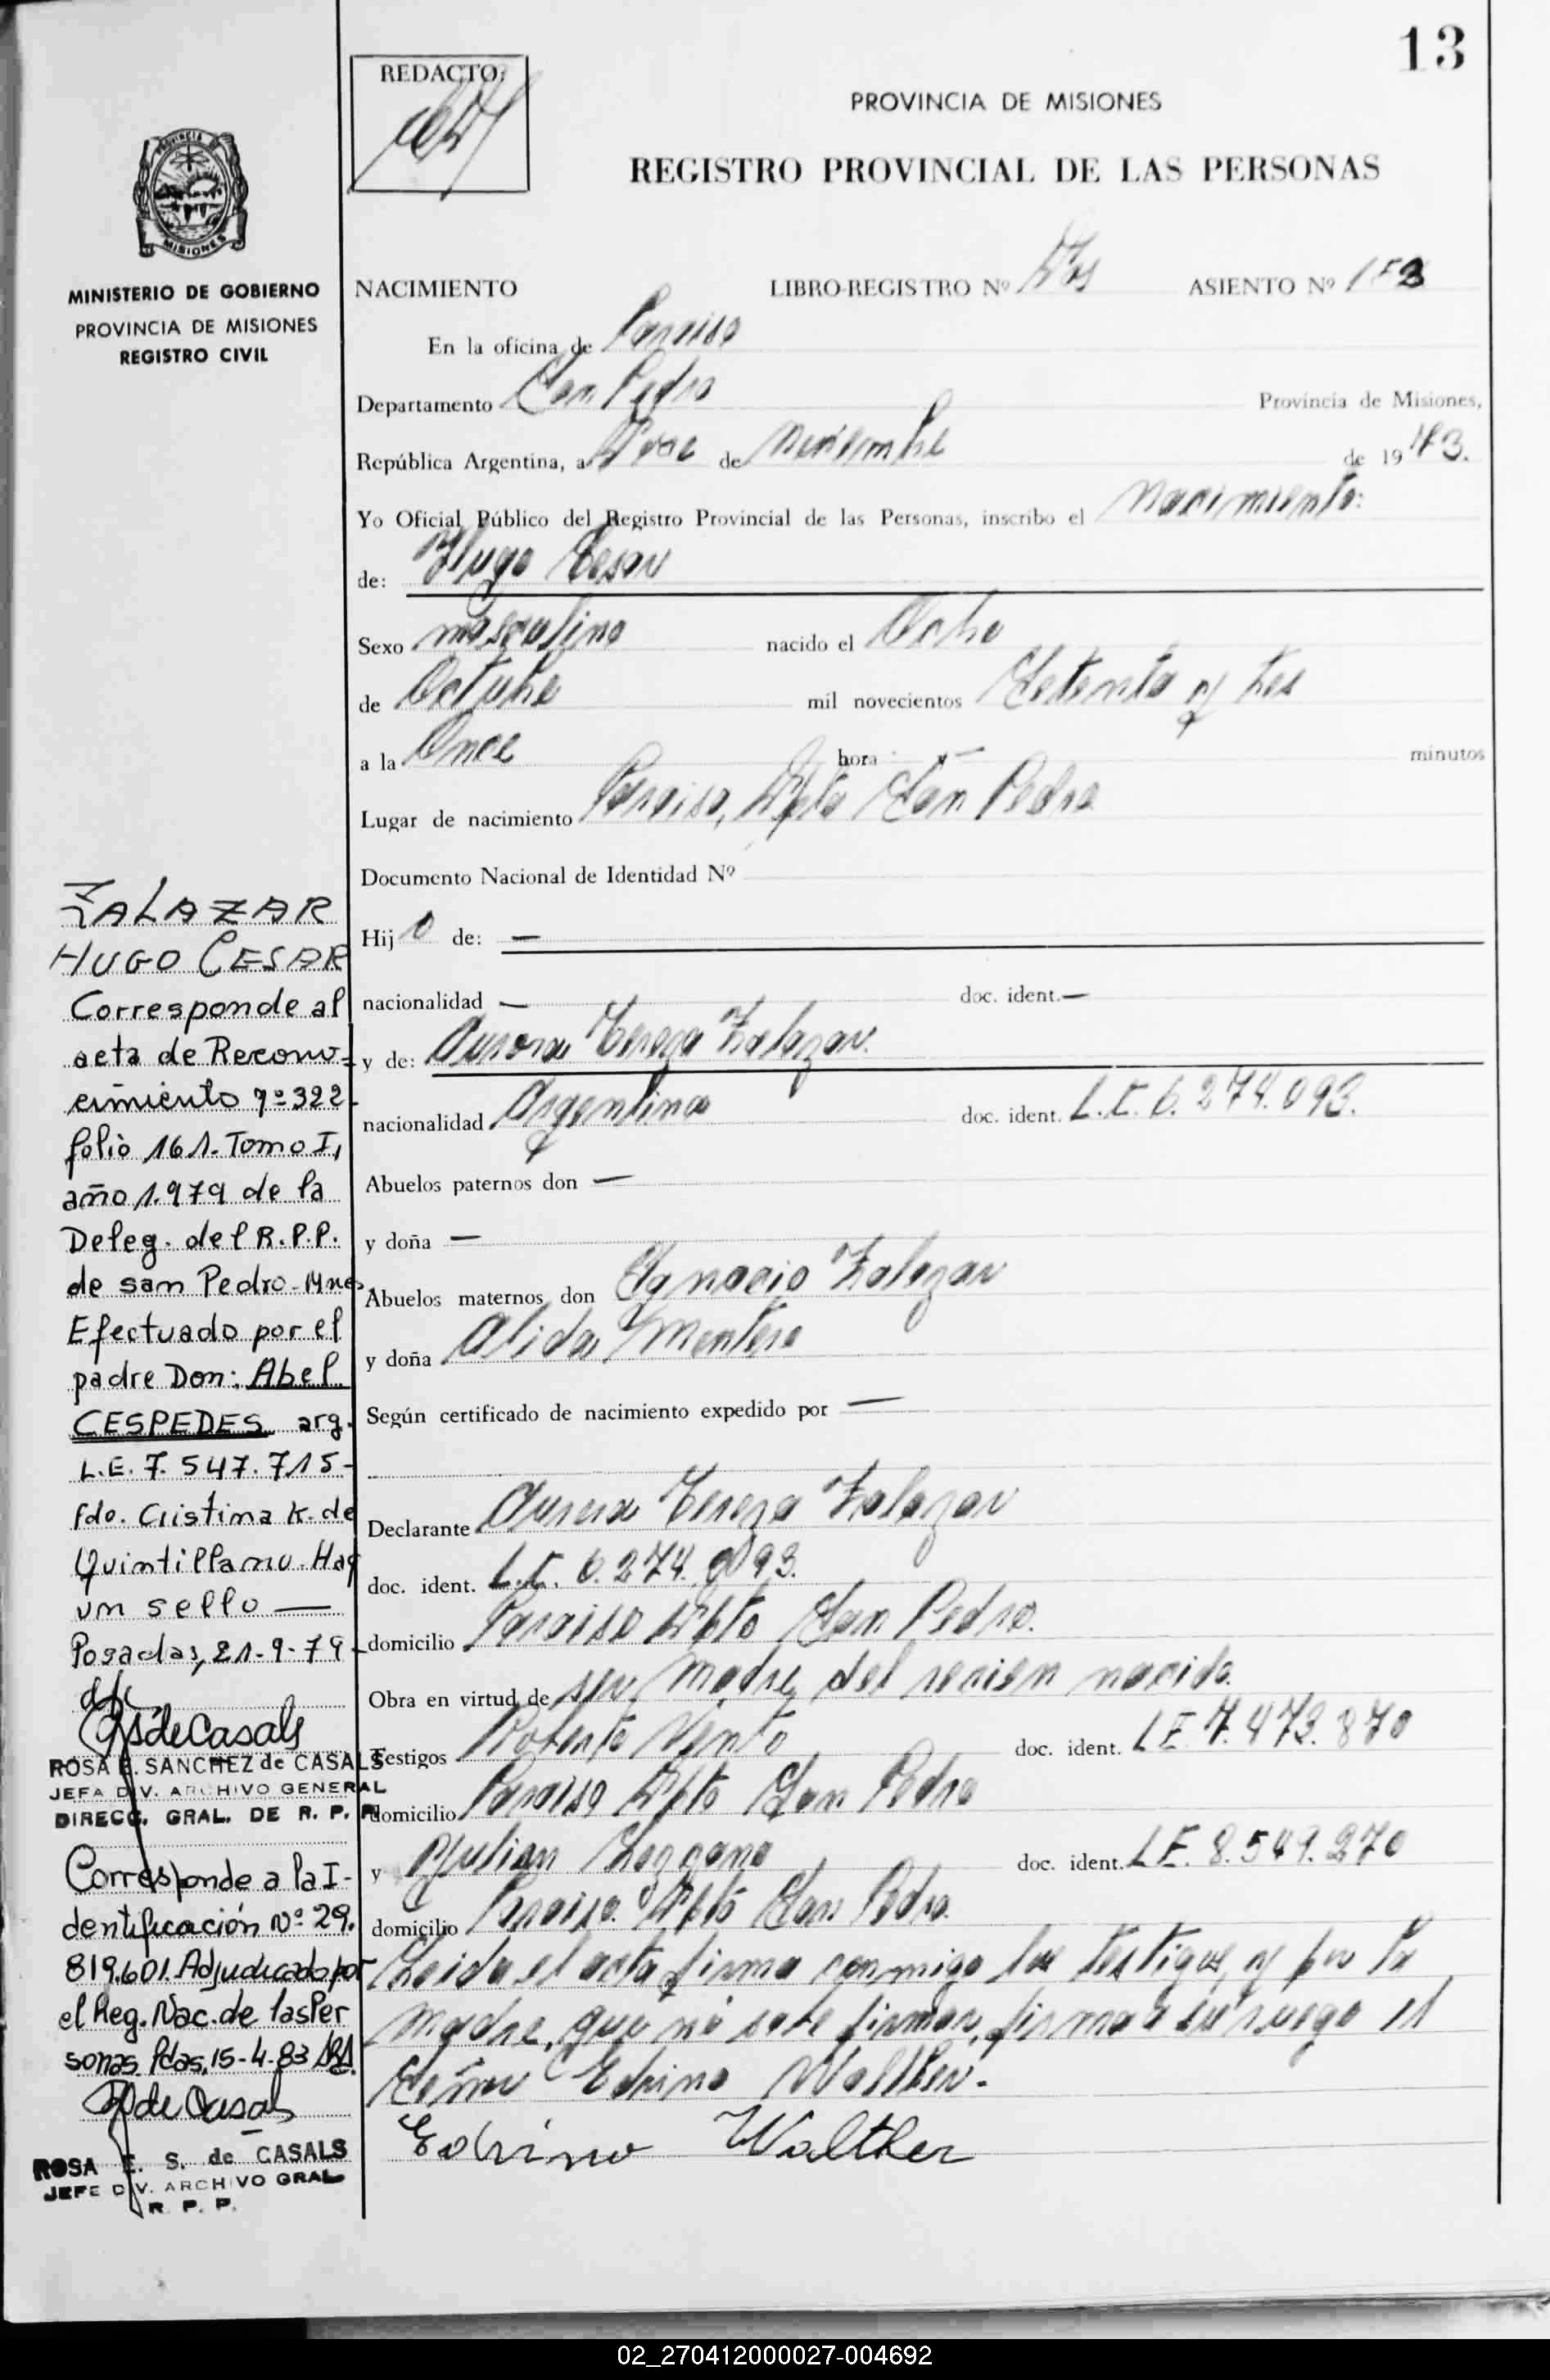 13
REDACTO:
PROVINCIA DE MISIONES
REGISTRO PROVINCIAL DE LAS PERSONAS
MISIONES
MINISTERIO DE GOBIERNO
PROVINCIA DE MISIONES
REGISTRO CIVIL
NACIMIENTO LIBRO-REGISTRO Nº Dos ASIENTO Nº 153
En la oficina de Paraiso
Departamento San Pedro Provincia de Misiones,
República Argentina, a Doce de Noviembre de 1973.
Yo Oficial Público del Registro Provincial de las Personas, inscribo el Nacimiento:
de: Hugo Cesar
Sexo masculino nacido el Ocho
de Octubre mil novecientos Setenta y tres
a la Once hora minutos
Lugar de nacimiento Paraiso, Dpto San Pedro
Documento Nacional de Identidad Nº
Hijo de: —
nacionalidad — doc. ident. —
y de: Aurora Tereza Zalazar.
nacionalidad Argentina doc. ident. L.C. 6.274.093.
Abuelos paternos don —
y doña —
Abuelos maternos don Ignacio Zalazar
y doña Alida Montero
Según certificado de nacimiento expedido por —
Declarante Aurora Tereza Zalazar
doc. ident. L.C. 6.274.093.
domicilio Paraiso Dpto San Pedro.
Obra en virtud de ser madre del recien nacido.
Testigos Roberto Vento doc. ident. LE 7.473.870
domicilio Paraiso Dpto San Pedro
y Julian Lezcano doc. ident. LE. 8.549.270
domicilio Paraiso. Dpto San Pedro.
Leida el acta firma conmigo los testigos y por la
madre, que no sabe firmar, firma a su ruego el
Señor Edvino Walther.
Edvino Walther
ZALAZAR
HUGO CESAR
Corresponde al
acta de Recono-
cimiento nº 322-
folio 161. Tomo I,
año 1.979 de la
Deleg. del R.P.P.
de san Pedro-Mnes
Efectuado por el
padre Don: Abel
CESPEDES arg.
L.E. 7.547.715-
fdo. Cristina K. de
Quintillamo. Hay
un sello —
Posadas, 21-9-79
RSdeCasals
ROSA E. SANCHEZ de CASALS
JEFA DIV. ARCHIVO GENERAL
DIRECC. GRAL. DE R. P. P.
Corresponde a la I-
dentificación Nº 29.
819.601. Adjudicado por
el Reg. Nac. de las Per
sonas. Pdas, 15-4-83
de Casals
ROSA E. S. de CASALS
JEFE DIV. ARCHIVO GRAL
R. P. P.
02_270412000027-004692